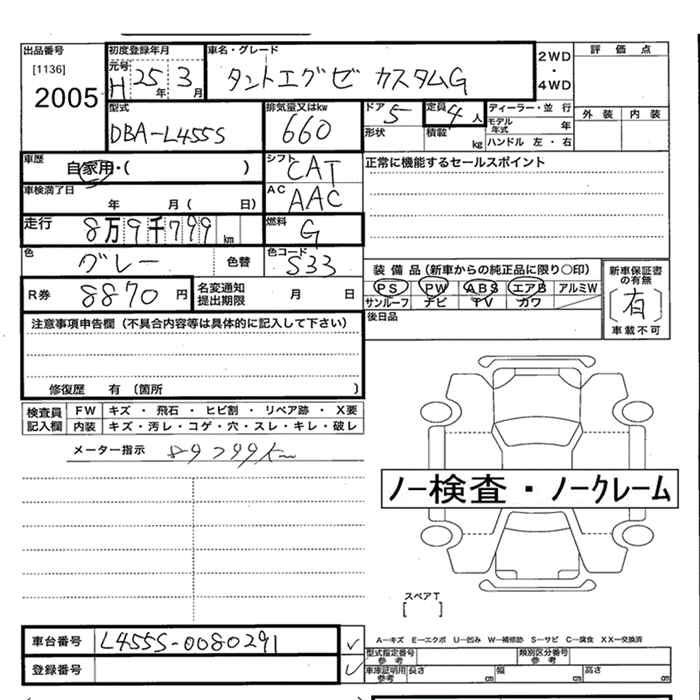 出品番号
[1136]
2005
初度登録年月
元号
H 25年 3月
車名・グレード
タントエグゼ カスタムG
2WD
・
4WD
評価点
外装 内装
型式
DBA-L455S
排気量又はkw
660
ドア 5
形状
定員 4人
積載 kg
ディーラー・並行
モデル年式 年
ハンドル 左・右
車歴
自家用・( )
シフト
CAT
正常に機能するセールスポイント
車検満了日
年 月( 日)
AC
AAC
走行
8万9千799km
燃料
G
色
グレー 色替
色コード
S33
装備品(新車からの純正品に限り○印)
PS PW ABS エアB アルミW
サンルーフ ナビ TV カワ
新車保証書
の有無
有
車載不可
R券
8870円
名変通知
提出期限
月 日
後日品
注意事項申告欄(不具合内容等は具体的に記入して下さい)
修復歴 有(箇所 )
検査員
記入欄
FW キズ・飛石・ヒビ割・リペア跡・X要
内装 キズ・汚レ・コゲ・穴・スレ・キレ・破レ
メーター指示 89799km
ノー検査・ノークレーム
スペアT
[ ]
車台番号 L455S-0080291
登録番号
A―キズ E―エクボ U―凹み W―補修跡 S―サビ C―腐食 XX―交換済
型式指定番号
参考
類別区分番号
参考
車庫証明用
参考
長さ cm 幅 cm 高さ cm